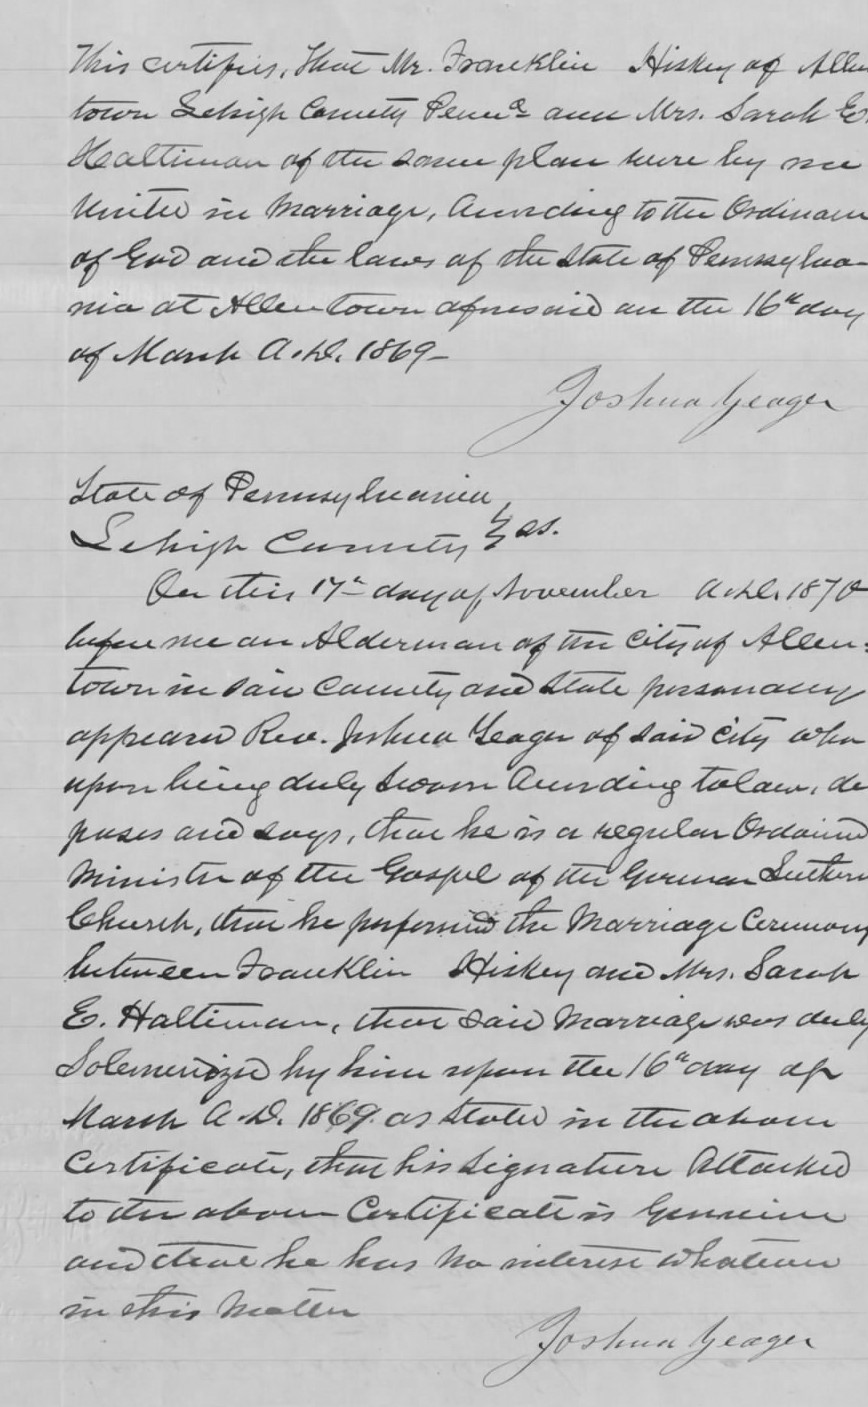 This certifies, that Mr. Franklin Hiskey of Allen
town Lehigh County Penn^a and Mrs. Sarah E.
Haltiman of the same place were by me
United in Marriage, According to the Ordinance
of God and the laws of the State of Pennsylva-
nia at Allentown aforesaid on the 16th day
of March A.D. 1869-
Joshua Yeager
State of Pennsylvania
Lehigh County } ss.
On this 17th day of November A.D. 1870
before me an Alderman of the City of Allen-
town in said County and State personally
appeared Rev. Joshua Yeager of said City who
upon being duly Sworn According to law, de
poses and says, that he is a regular Ordained
Minister of the Gospel of the German Lutheran
Church, that he performed the Marriage Ceremony
between Franklin Hiskey and Mrs. Sarah
E. Haltiman, that said Marriage was duly
Solemenized by him upon the 16th day of
March A.D. 1869. as Stated in the above
Certificate, that his Signature Attached
to the above Certificate is Genuine
and that he has no interest whatever
in this Matter
Joshua Yeager